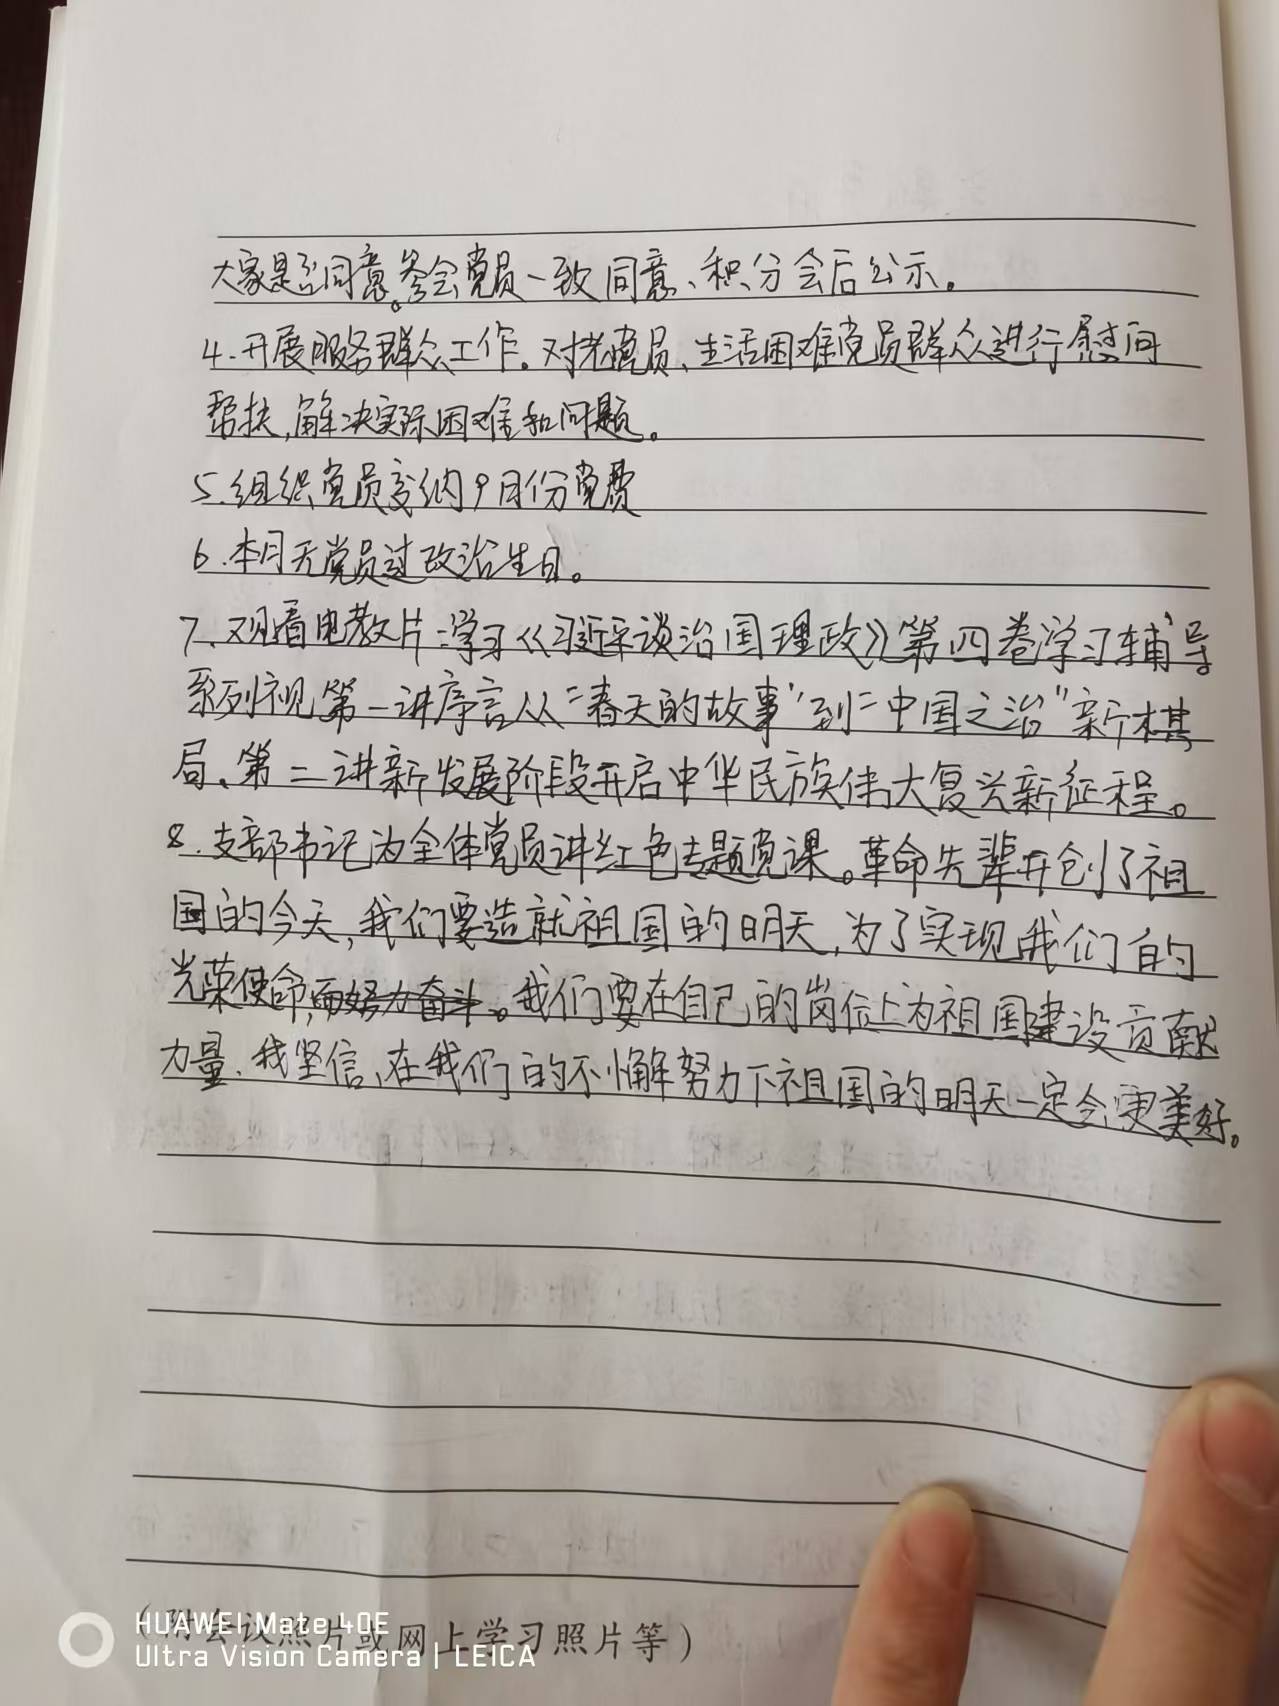 大家是否同意。参会党员一致同意、积分会后公示。
4.开展服务群众工作。对老党员、生活困难党员群众进行慰问
帮扶,解决实际困难和问题。
5.组织党员交纳9月份党费
6.本月无党员过政治生日。
7.观看电教片:学习《习近平谈治国理政》第四卷学习辅导
系列视第一讲序言从“春天的故事”到“中国之治”新棋
局、第二讲新发展阶段开启中华民族伟大复兴新征程。
8.支部书记为全体党员讲红色专题党课。革命先辈开创了祖
国的今天,我们要造就祖国的明天,为了实现我们的
光荣使命,而努力奋斗。我们要在自己的岗位上为祖国建设贡献
力量、我坚信、在我们的不懈努力下祖国的明天一定会更美好。
(附会议照片或网上学习照片等)
HUAWEI Mate 40E
Ultra Vision Camera | LEICA